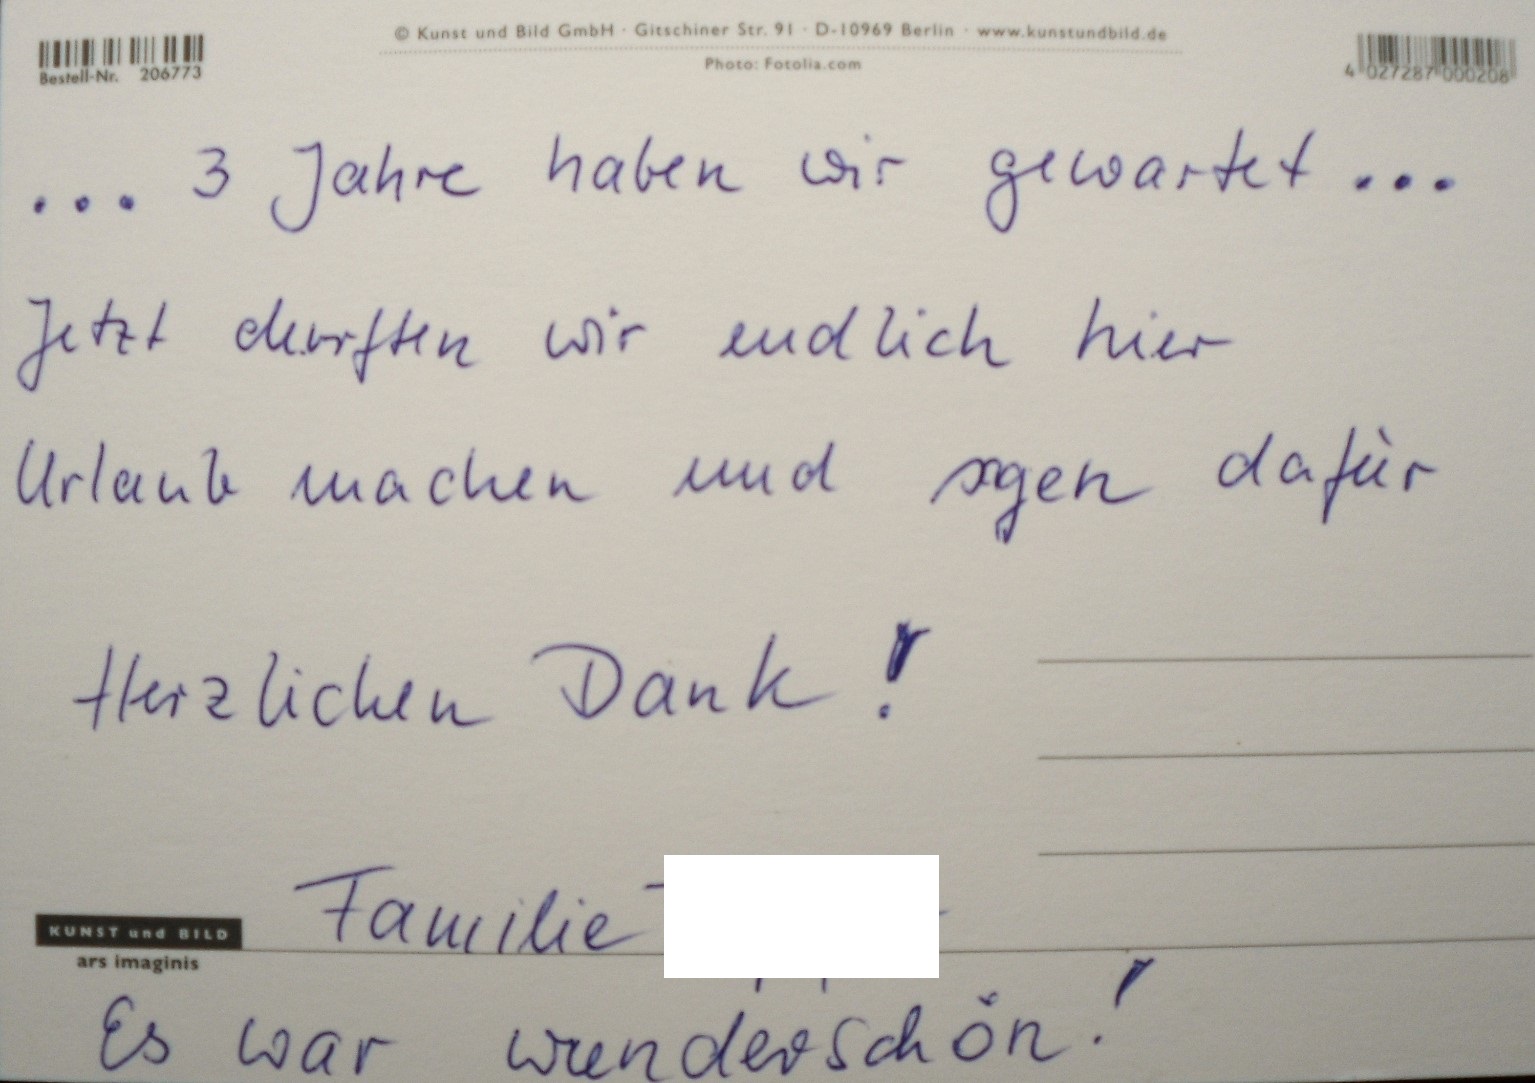 © Kunst und Bild GmbH · Gitschiner Str. 91 · D-10969 Berlin · www.kunstundbild.de
Photo: Fotolia.com
Bestell-Nr. 206773
4 027287 000208
... 3 Jahre haben wir gewartet ...
Jetzt durften wir endlich hier
Urlaub machen und sgen dafür
Herzlichen Dank!
Familie
KUNST und BILD
ars imaginis
Es war wunderschön!